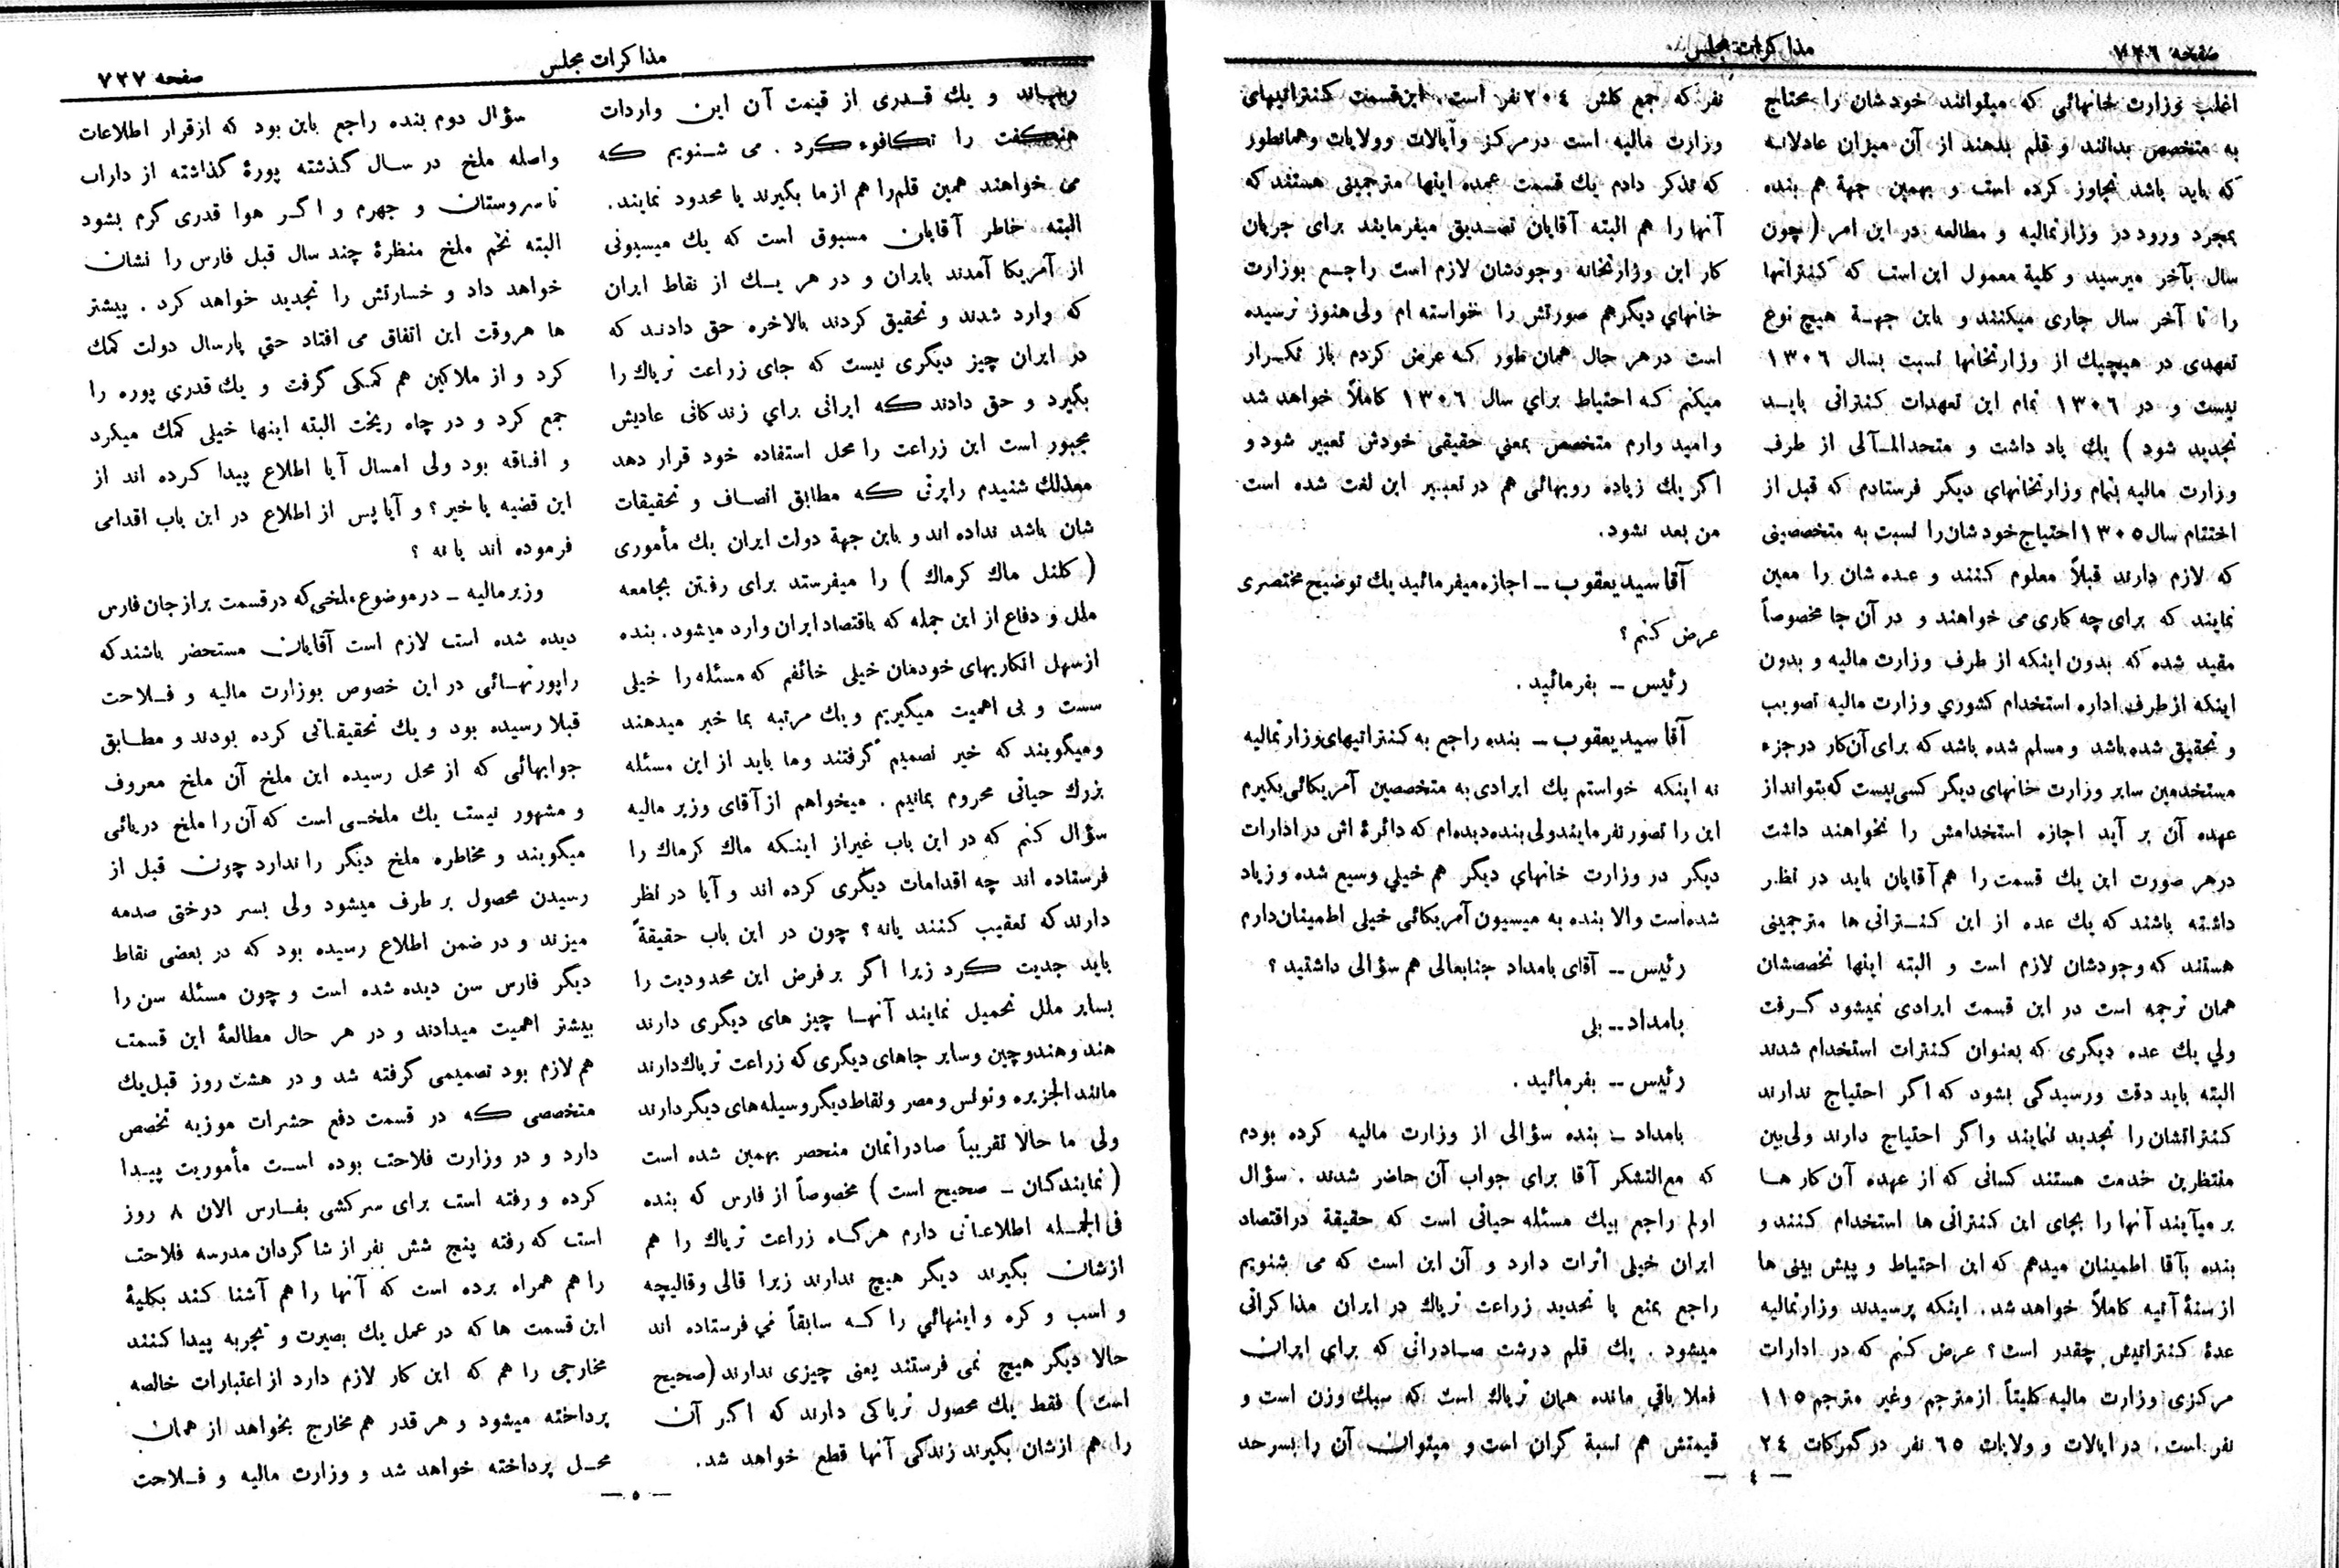 صفحه ۷۳۶
مذاکرات مجلس
اغلب وزارت خانهائی که میتوانند خودشان را محتاج
به متخصص بدانند و قلم بدهند از آن میزان عادلانه
که باید باشد تجاوز کرده است و بهمین جهة هم بنده
بمجرد ورود در وزارتمالیه و مطالعه در این امر (چون
سال بآخر میرسید و کلیة معمول این است که کنتراتها
را تا آخر سال جاری میکنند و باین جهـة هیچ نوع
تعهدی در هیچیك از وزارتخانها نسبت بسال ۱۳۰۶
نیست و در ۱۳۰۶ تمام این تعهدات کنتراتی بایـد
تجدید شود ) یك یاد داشت و متحدالمـآلی از طرف
وزارت مالیه بتمام وزارتخانهای دیگر فرستادم که قبل از
اختتام سال ۱۳۰۵ احتیاج خودشان را نسبت به متخصصینی
که لازم دارند قبلاً معلوم کنند و عده شان را معین
نمایند که برای چه کاری می خواهند و در آن جا مخصوصاً
مقید شده که بدون اینکه از طرف وزارت مالیه و بدون
اینکه از طرف اداره استخدام کشوری وزارت مالیه تصویب
و تحقیق شده باشد و مسلم شده باشد که برای آن کار در جزء
مستخدمین سایر وزارت خانهای دیگر کسی نیست که بتواند از
عهده آن بر آید اجازه استخدامش را نخواهند داشت
درهر صورت این یك قسمت را هم آقایان باید در نظر
داشته باشند که یك عده از این کنـتراتی ها مترجمینی
هستند که وجودشان لازم است و البته اینها تخصصشان
همان ترجمه است در این قسمت ایرادی نمیشود گـرفت
ولی یك عده دیگری که بعنوان کنترات استخدام شدند
البته باید دقت ورسیدگی بشود که اگر احتیاج ندارند
کنتراتشان را تجدید ننمایند واگر احتیاج دارند ولی بین
منتظرین خدمت هستند کسانی که از عهده آن کار هـا
بر میآیند آنها را بجای این کنتراتی ها استخدام کنند و
بنده بآقا اطمینان میدهم که این احتیاط و پیش بینی ها
از سنۀ آتیه کاملاً خواهد شد. اینکه پرسیدند وزارتمالیه
عدۀ کنتراتیش چقدر است؟ عرض کنم که در ادارات
مرکزی وزارت مالیه کلیتاً از مترجم وغیر مترجم ۱۱۵
نفر است. در ایالات و ولایات ۶۵ نفر در گمرکات ۲۴
نفر که جمع کلش ۲۰۴ نفر است. این قسمت کنتراتیهای
وزارت مالیه است درمرکز وآیالات وولایات وهمانطور
که تذکر دادم یك قسمت عمده اینها مترجمینی هستند که
آنها را هم البته آقایان تصـدیق میفرمایند برای جریان
کار این وزارتخانه وجودشان لازم است راجـع بوزارت
خانهای دیگرهم صورتش را خواسته ام ولی هنوز نرسیده
است درهر حال همان طور کـه عرض کردم باز تکـرار
میکنم کـه احتیاط برای سال ۱۳۰۶ کاملاً خواهد شد
و امید وارم متخصص بمعنی حقیقی خودش تعبیر شود و
اگر یك زیاده رویهائی هم در تعبیر این لغت شده است
من بعد نشود.
آقا سید یعقوب ــ اجازه میفرمائید یك توضیح مختصری
عرض کنم؟
رئیس ــ بفرمائید .
آقا سید یعقوب ــ بنده راجع به کنتراتیهای وزارتمالیه
نه اینکه خواستم یك ایرادی به متخصصین آمریکائی بگیرم
این را تصور نفرمایند ولی بنده دیده‌ام که دائرۀ اش در ادارات
دیگر در وزارت خانهای دیگر هم خیلی وسیع شده و زیاد
شده‌است والا بنده به میسیون آمریکائی خیلی اطمینان دارم
رئیس ــ آقای بامداد جنابعالی هم سؤالی داشتید ؟
بامداد ــ بلی
رئیس ــ بفرمائید .
بامداد ــ بنده سؤالی از وزارت مالیه کرده بودم
که مع‌التشکر آقا برای جواب آن حاضر شدند . سؤال
اولم راجع بیك مسئله حیاتی است که حقیقة در اقتصاد
ایران خیلی اثرات دارد و آن این است که می شنویم
راجع بمنع یا تحدید زراعت تریاك در ایران مذاکراتی
میشود . یك قلم درشت صـادراتی که برای ایران
فعلا باقی مانده همان تریاك است که سبك وزن است و
قیمتش هم نسبة گران است و میتوان آن را بسرحد
ــ ٤ ــ
مذاکرات مجلس
صفحه ۷۳۷
رسـاند و یك قـدری از قیمت آن این واردات
هنگفت را تکافوء کرد . می شـنویم که
می خواهند همین قلم‌را هم از ما بگیرند یا محدود نمایند.
البته خاطر آقایان مسبوق است که یك میسیونی
از آمریکا آمدند بایران و در هر یـك از نقاط ایران
که وارد شدند و تحقیق کردند بالاخره حق دادند که
در ایران چیز دیگری نیست که جای زراعت تریاك را
بگیرد و حق دادند که ایرانی برای زندگانی عادیش
مجبور است این زراعت را محل استفاده خود قرار دهد
معذلك شنیدم راپرتی که مطابق انصـاف و تحقیقات
شان باشد نداده اند و باین جهة دولت ایران یك مأموری
( کلنل ماك کرماك ) را میفرستد برای رفتن بجامعه
ملل و دفاع از این جمله که باقتصاد ایران وارد میشود. بنده
از سهل انکاریهای خودمان خیلی خائفم که مسئله را خیلی
سست و بی اهمیت میگیریم و یك مرتبه بما خبر میدهند
و میگویند که خیر تصمیم گرفتند وما باید از این مسئله
بزرك حیاتی محروم بمانیم . میخواهم از آقای وزیر مالیه
سؤال کنم که در این باب غیر از اینـکه ماك کرماك را
فرستاده اند چه اقدامات دیگری کرده اند و آیا در نظر
دارند که تعقیب کنند یانه ؟ چون در این باب حقیقةً
باید جدیت کرد زیرا اگر بر فرض این محدودیت را
بسایر ملل تحمیل نمایند آنهـا چیز های دیگری دارند
هند و هندوچین وسایر جاهای دیگری که زراعت تریاك دارند
مانند الجزیره و تونس و مصر و نقاط دیگر وسیله های دیگر دارند
ولی ما حالا تقریباً صادراتمان منحصر بهمین شده است
( نمایندگان ــ صحیح است ) مخصوصاً از فارس که بنده
فی الجمـله اطلاعـاتی دارم هرگـاه زراعت تریاك را هم
ازشان بگیرند دیگر هیچ ندارند زیرا قالی و قالیچه
و اسب و کره و اینهائی را کـه سابقاً می فرستاده اند
حالا دیگر هیچ نمی فرستند یعنی چیزی ندارند (صحیح
است) فقط یك محصول تریاکی دارند که اگر آن
را هم ازشان بگیرند زندگی آنها قطع خواهد شد.
سؤال دوم بنده راجع باین بود که از قرار اطلاعات
واصله ملخ در سـال گذشته پورۀ گذاشته از داراب
تا سروستان و جهرم و اگـر هوا قدری گرم بشود
البته تخم ملخ منظرۀ چند سال قبل فارس را نشان
خواهد داد و خسارتش را تجدید خواهد کرد . پیشتر
ها هروقت این اتفاق می افتاد حتی پارسال دولت کمك
کرد و از ملاکین هم کمکی گرفت و یك قدری پوره را
جمع کرد و در چاه ریخت البته اینها خیلی کمك میکرد
و افاقه بود ولی امسال آیا اطلاع پیدا کرده اند از
این قضیه یا خیر ؟ و آیا پس از اطلاع در این باب اقدامی
فرموده اند یا نه ؟
وزیر مالیه ــ در موضوع ملخی که در قسمت برازجان فارس
دیده شده است لازم است آقایان مستحضر باشند که
راپورتهـائی در این خصوص بوزارت مالیه و فـلاحت
قبلا رسیده بود و یك تحقیقـاتی کرده بودند و مطـابق
جوابهائی که از محل رسیده این ملخ آن ملخ معروف
و مشهور نیست یك ملخـی است که آن را ملخ دریائی
میگویند و مخاطره ملخ دیگر را ندارد چون قبل از
رسیدن محصول بر طرف میشود ولی بسر درختی صدمه
میزند و در ضمن اطلاع رسیده بود که در بعضی نقاط
دیگر فارس سن دیده شده است و چون مسئله سن را
بیشتر اهمیت میدادند و در هر حال مطالعۀ این قسمت
هم لازم بود تصمیمی گرفته شد و در هشت روز قبل یك
متخصصی که در قسمت دفع حشرات موزیه تخصص
دارد و در وزارت فلاحت بوده اسـت مأموریت پیـدا
کرده و رفته است برای سرکشی بفـارس الان ۸ روز
است که رفته پنج شش نفر از شاگردان مدرسه فلاحت
را هم همراه برده است که آنها را هم آشنا کند بکلیۀ
این قسمت ها که در عمل یك بصیرت و تجربه پیدا کنند
مخارجی را هم که این کار لازم دارد از اعتبارات خالصه
پرداخته میشود و هر قدر هم مخارج بخواهد از همان
محـل پرداخته خواهد شد و وزارت مالیه و فـلاحت
ــ ٥ ــ